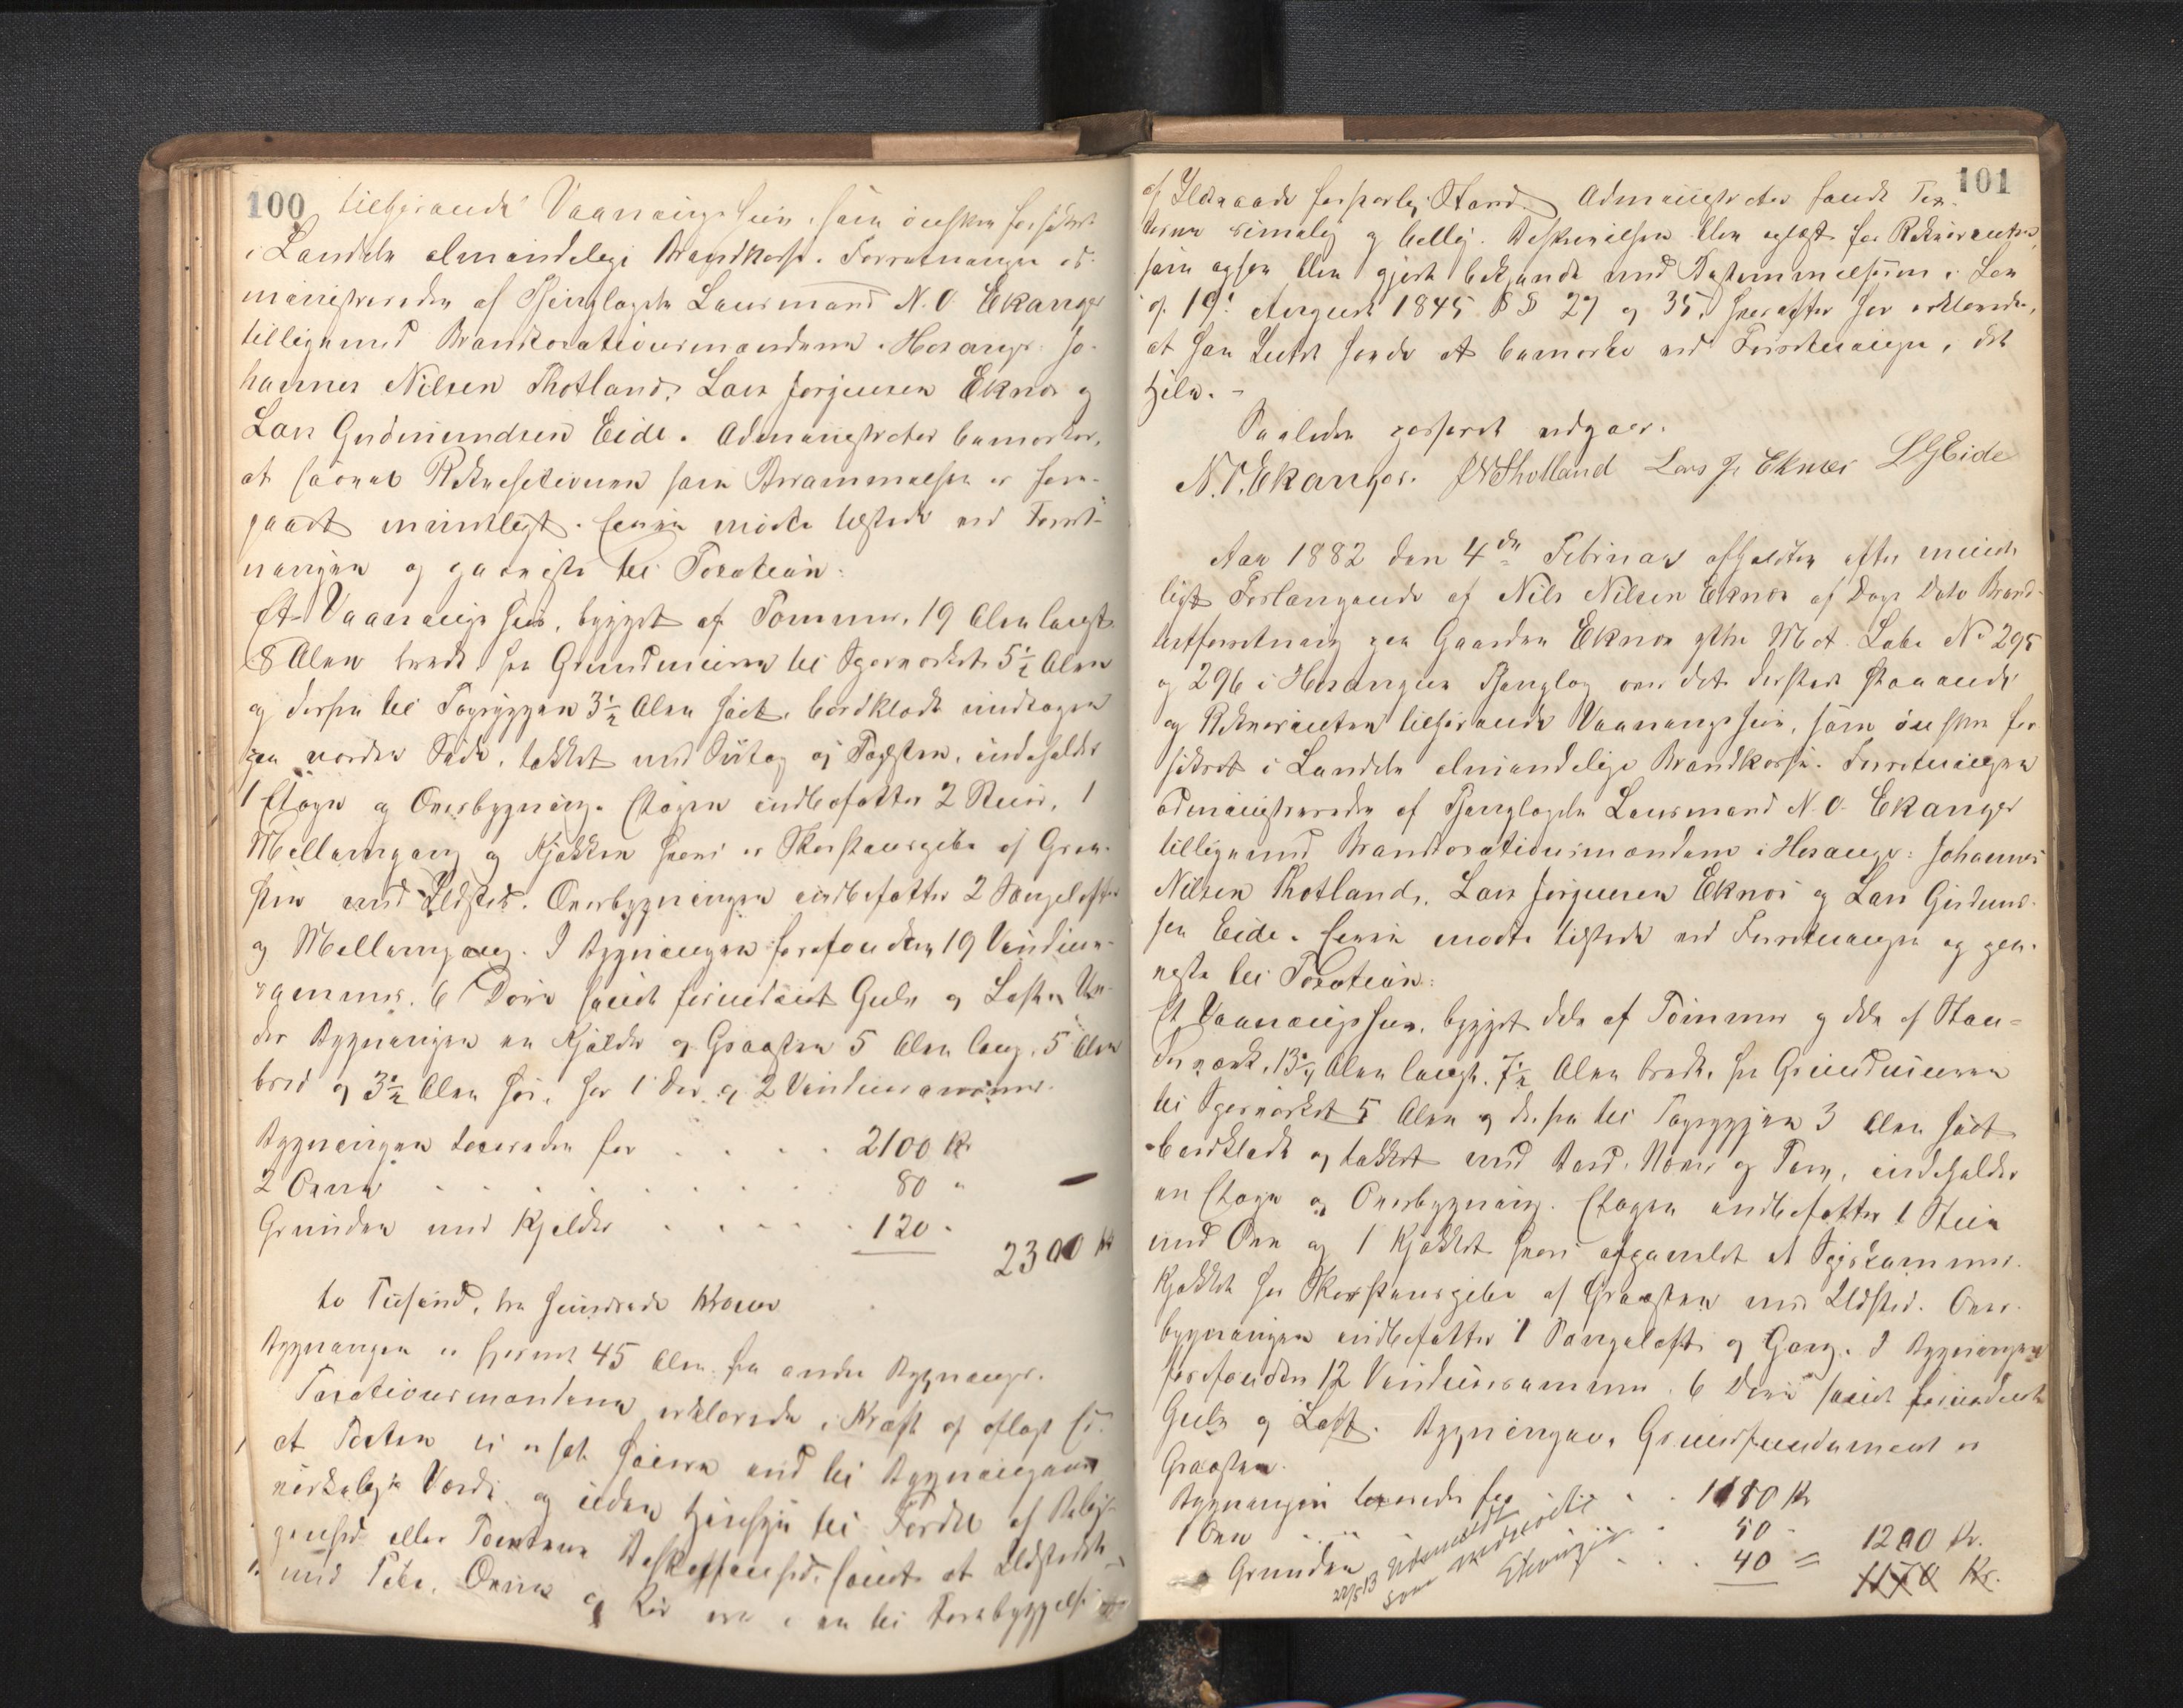 100
tilhørende Vaaningshuus, som ønskes forsikret
i Landets almindelige Brandkasse. Forretningen ad-
ministreredes af Thinglagets Lensmand N. O. Ekanger
tilligemed Brandtaxationsmændene i Hosanger: Jo-
hannes Nilsen Tholland, Lars Jørgensen Eknæs og
Lars Gudmundsen Eide. Administrator bemærker,
at saavel Rekvisitionen som Berammelsen er fore-
gaaet mundtligt. Eieren mødte tilstede ved Forret-
ningen og gaves til Taxation:
Et Vaaningshuus, bygget af Tømmer, 19 Alen langt
8 Alen bredt fra Grundmuren til Sperreverket 5½ Alen
og derfra til Tagryggen 3½ Alen høit, bordklædt undtagen
paa nordre Side, tækket med Sutag og Tagsten, indeholder
1 Etage og Overbygning. Etagen indbefatter 2 Stuer, 1
Mellemgang og Kjøkken hvori er Skorstenspibe af Graa-
sten med Ildsted. Overbygningen indbefatter 2 Sengelofter
og Mellemgang. I Bygningen forefindes 19 Vindues-
rammer, 6 Døre samt fornødent Gulv og Loft. Un-
der Bygningen en Kjelder af Graasten 5 Alen lang, 5 Alen
bred og 3½ Alen høi, har 1 Dør og 2 Vinduesrammer.
Bygningen taxeredes for . . . . 2100 Kr
2 Ovne . . . . . . . 80 "
Grunden med Kjelder . . . . 120 "
2300 Kr
to Tusend, tre hundrede Kroner
Bygningen er fjernet 45 Alen fra andre Bygninger.
Taxationsmændene erklærede i Kraft af aflagt Ed
at Taxten ei er sat høiere end til Bygningens
virkelige Værdi og uden Hensyn til Fordel af Belig-
genhed eller Tomtens Beskaffenhed, samt at Ildstedet
med Pibe, Ovne og Rør ere i en til Forebyggelse
101
af Ildsvaade forsvarlig Stand. Administrator fandt Tax-
terne rimelig og billig. Beskrivelsen blev oplæst for Rekvirenten
som ogsaa blev gjort bekjendt med Bestemmelserne i Lov
af 19. August 1845 §§ 27 og 35, hvorefter han erklærede,
at han Intet havde at bemærke ved Forretningen, der
hjelm. -
Saaledes passeret udgaar.
N. O. Ekanger. JNTholland Lars Jr Eknæs LGEide
Aar 1882 den 4de Februar afholdtes efter mundt-
ligt Forlangende af Nils Nilsen Eknæs af Dags Dato Brand-
taxtforretning paa Gaarden Eknæs gthe Mat. Løbe No 295
og 296 i Hosangers Thinglag over det dersteds staaende
og Rekvirenten tilhørende Vaaningshuus, som ønskes for-
sikret i Landets almindelige Brandkasse. Forretningen
administreredes af Thinglagets Lensmand N. O. Ekanger
tilligemed Brandtaxationsmændene i Hosanger: Johannes
Nilsen Tholland, Lars Jørgensen Eknæs og Lars Gudmund-
sen Eide. Eieren mødte tilstede ved Forretningen og paa-
viste til Taxation:
Et Vaaningshuus, bygget dels af Tømmer og dels af Stav-
verk, 13¾ Alen langt, 7½ Alen bredt, fra Grundmuren
til Sperreverket 5 Alen og derfra til Tagryggen 3 Alen høit
bordklædt og tækket med Bord, Næver og Torv, indeholder
en Etage og Overbygning. Etagen indbefatter 1 Stue
med Ovn og 1 Kjøkken hvori afpanelet et Spiskammer.
Kjøkket har Skorstenspibe af Graasten med Ildsted. Over-
bygningen indbefatter 1 Sengeloft og Gang. I Bygningen
forefindes 12 Vinduesrammer, 6 Døre samt fornødent
Gulv og Loft. Bygningens Grundfundament er
Graasten.
Bygningen taxeredes for . . . 1110 Kr
1 Ovn . . . . 50 -
Grunden . . . 40 =
1200 Kr.
1150 Kr.
22/5 13 Udmeldt